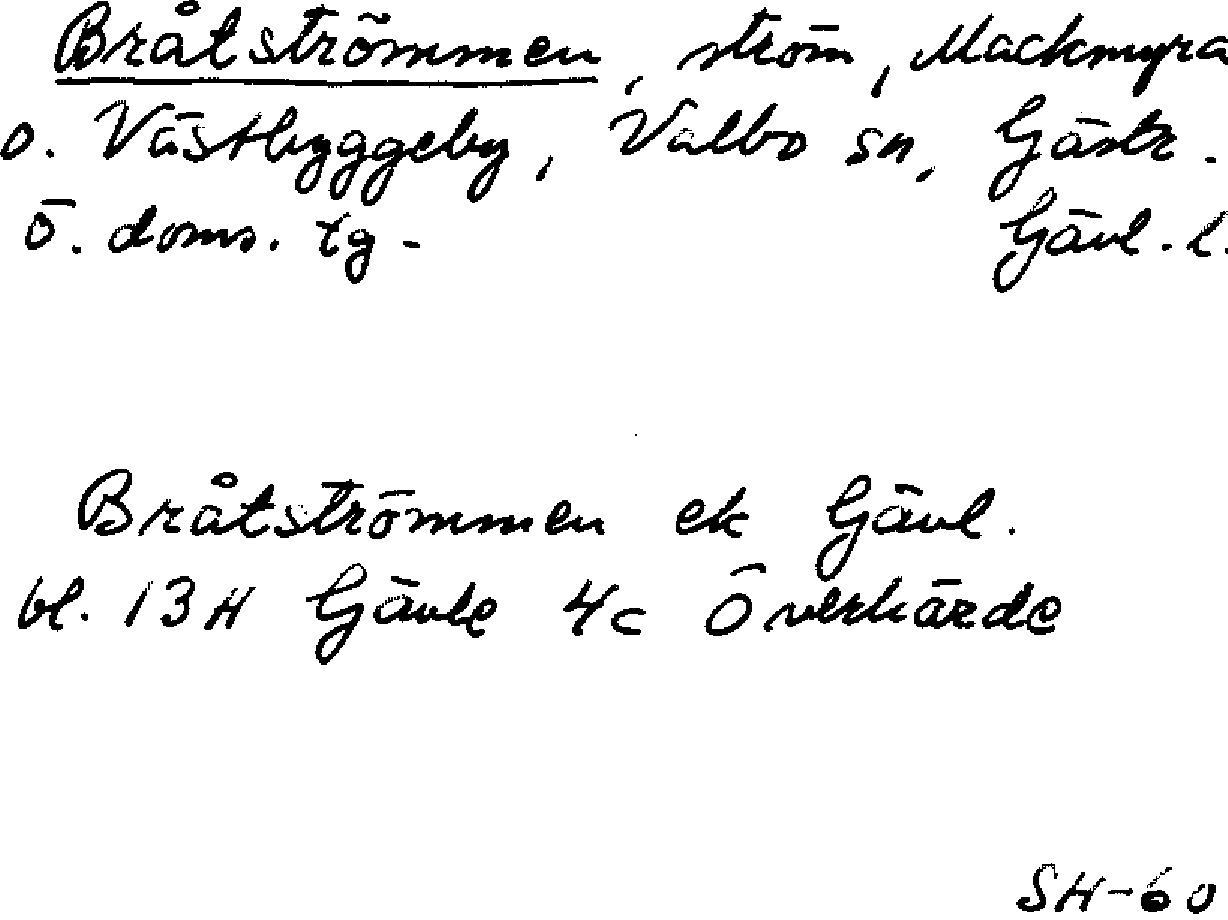 Bråtströmmen, ström, Mackmyra
o. Västbyggeby, Valbo sn, Gästr.
ö. doms. tg - Gävl. l.
Bråtströmmen ek Gävl.
bl. 13H Gävle 4c Överhärde
SH-60